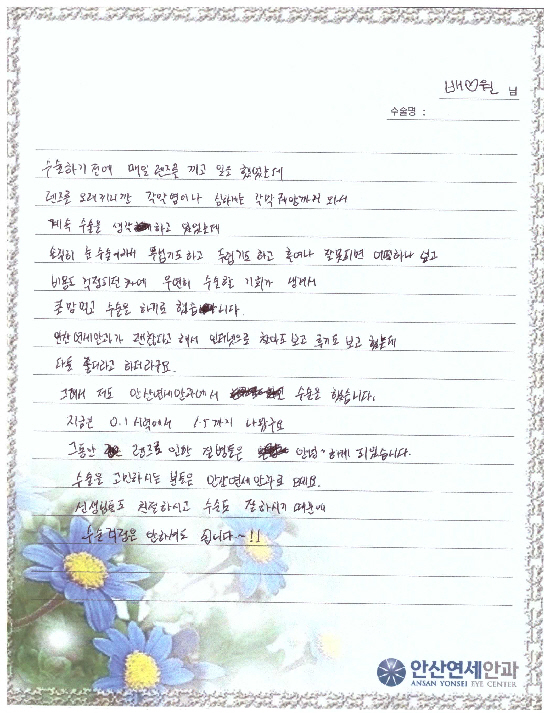 배♡원 님
수술명 :
수술하기 전에 매일 렌즈를 끼고 일을 했었는데
렌즈를 오래끼니깐 각막염이나 심하게는 각막궤양까지 와서
계속 수술을 생각하고 있었는데
솔직히 눈 수술이라서 무섭기도하고 두렵기도 하고 혹여나 잘못되면 어쩌하나 싶고
비용도 걱정되던 차에 우연히 수술할 기회가 생겨서
큰맘먹고 수술을 하기로 했습니다.
안산연세안과가 괜찮다고 해서 인터넷으로 찾아도보고 후기도 보고 했는데
다들 좋더라고 하더라구요.
그래서 저도 안산연세안과에서 수술을 했습니다.
지금껏 0.1 시력에서 1.5까지 나왔구요
그동안 렌즈로 인한 질병들은 안녕~하게 되었습니다.
수술을 고민하시는 분들은 안산연세안과로 오세요.
선생님들도 친절하시고 수술도 잘하시기 때문에
수술걱정은 안하셔도 됩니다~!!
안산연세안과
ANSAN YONSEI EYE CENTER